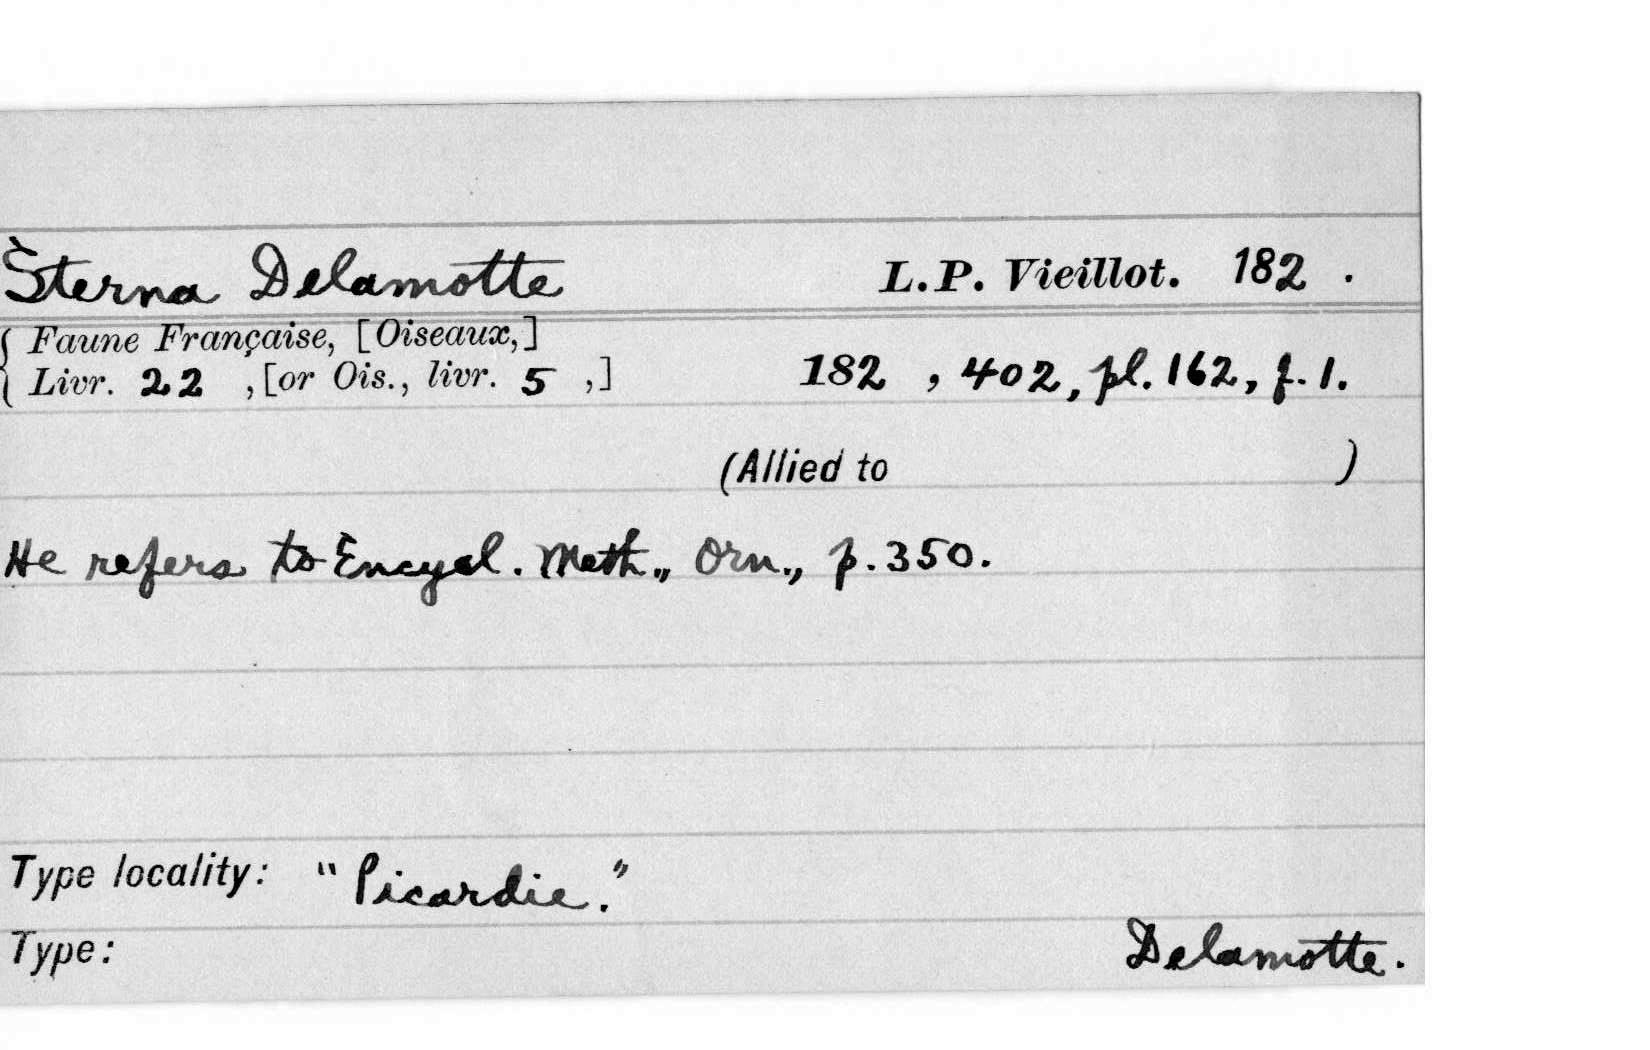 Sterna Delamotte L.P. Vieillot. 182 .
Faune Française, [Oiseaux,]
Livr. 22 , [or Ois., livr. 5 ,] 182 , 402, pl. 162, f. 1.
(Allied to )
He refers to Encycl. Meth., Orn., p. 350.
Type locality: "Picardie."
Type: Delamotte.